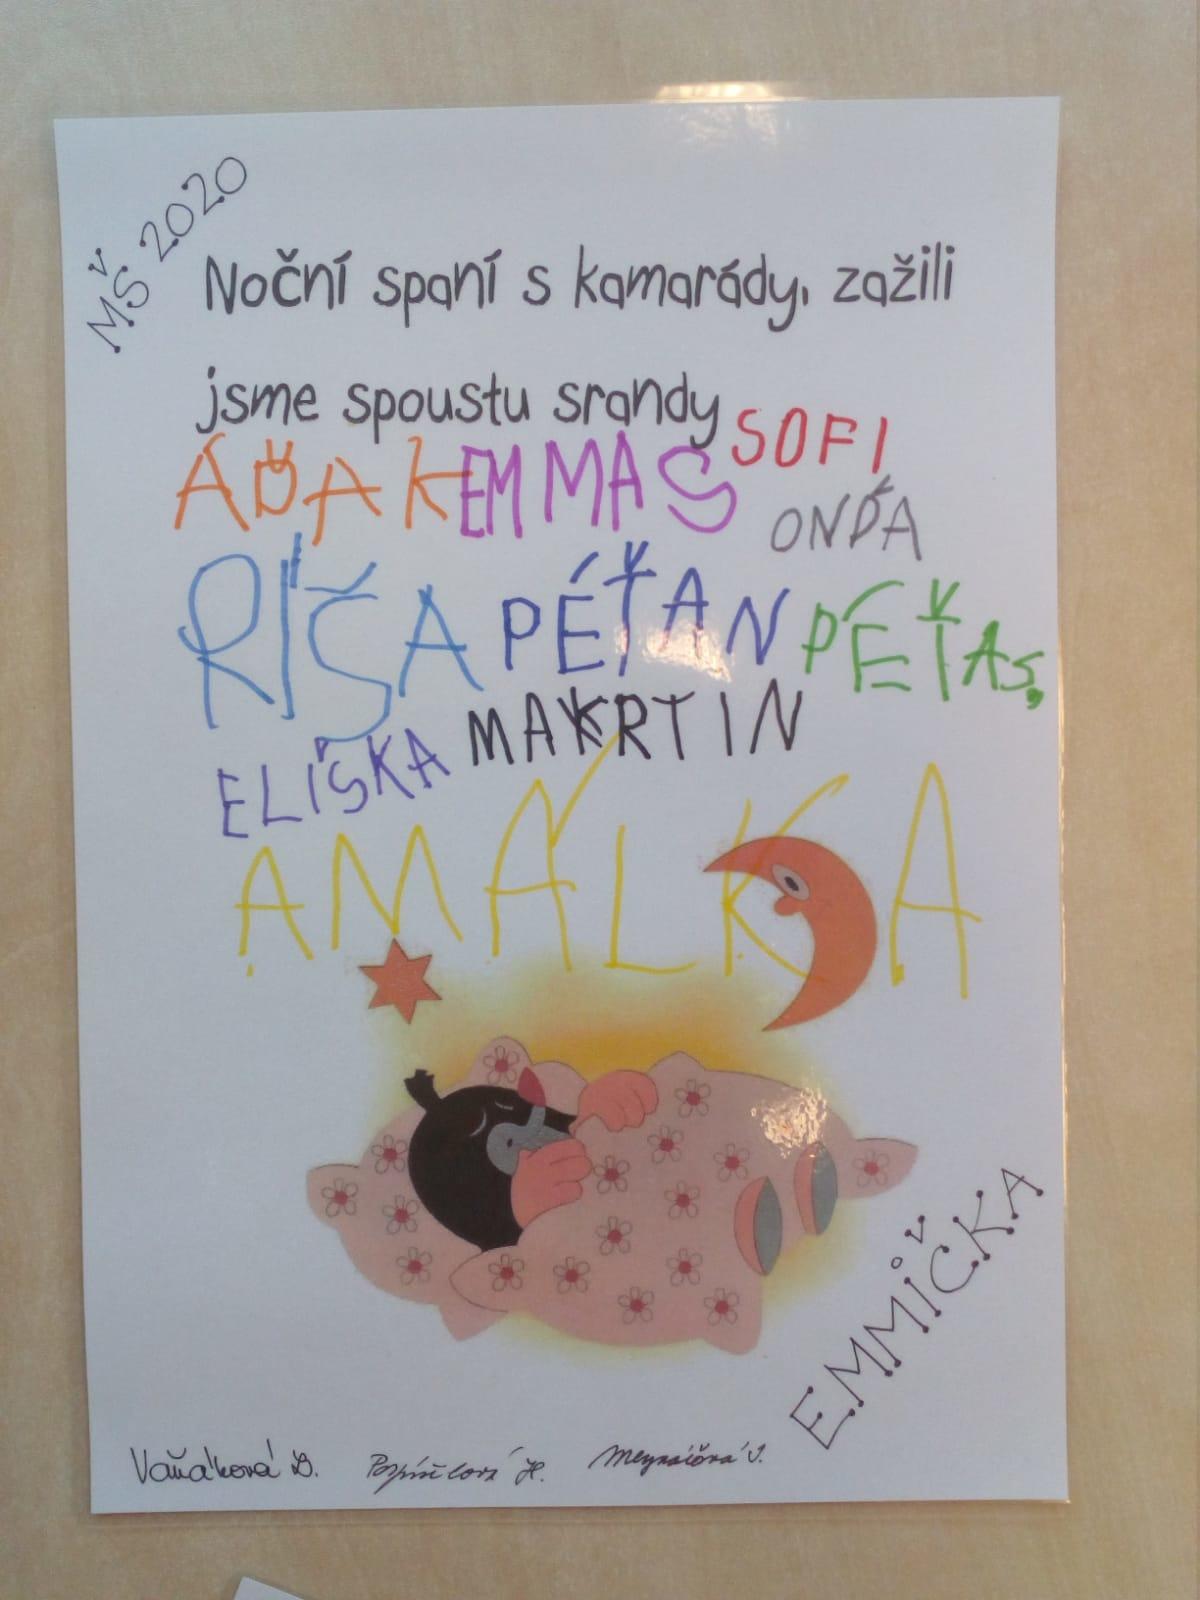 MŠ 2020
Noční spaní s kamarády, zažili
jsme spoustu srandy
SOFI
ÁĎA K EMMA S
ONĎA
RÍŠA PÉŤAN PÉŤA S.
ELIŠKA MAKRTIN
AMÁLKA
EMMIČKA
Vaňáková D. Pospíšilová H.